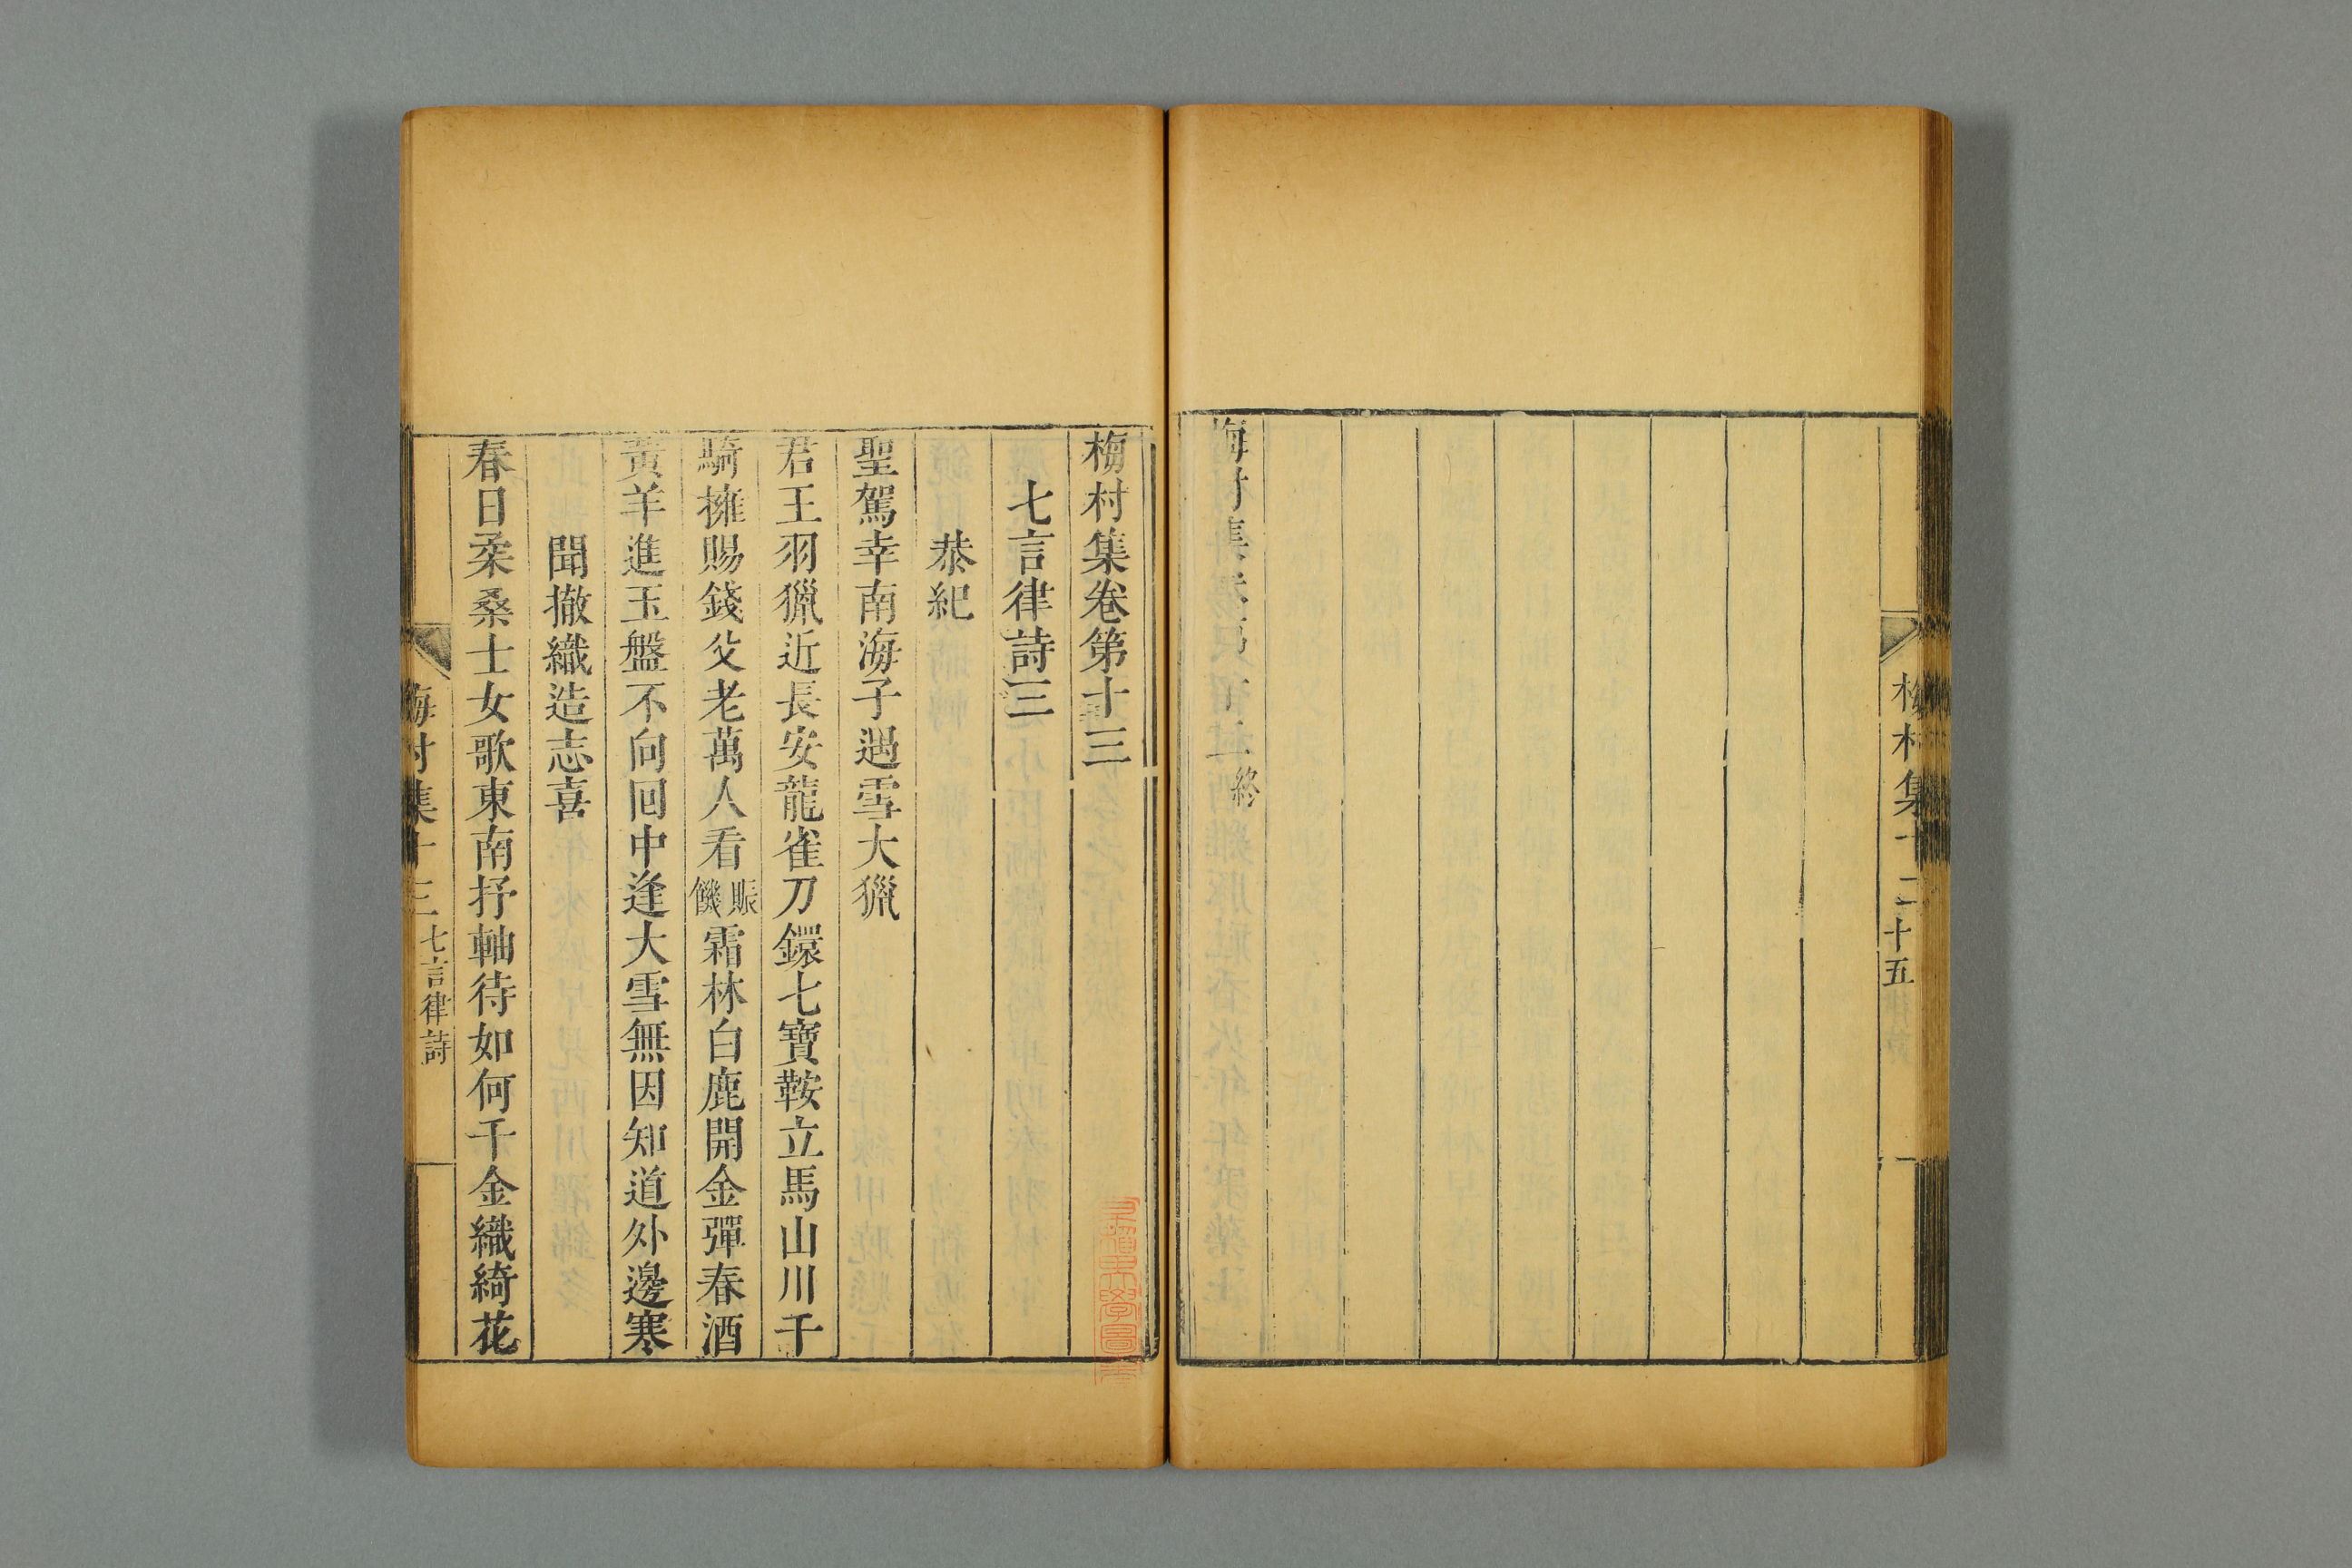 梅村集十二
十五
梅村集卷第十二終
梅村集卷第十三
七言律詩三
恭紀
聖駕幸南海子遇雪大獵
君王羽獵近長安龍雀刀鐶七寶鞍立馬山川千
騎擁賜錢父老萬人看賑饑霜林白鹿開金彈春酒
黃羊進玉盤不向回中逢大雪無因知道外邊寒
聞撤織造志喜
春日柔桑士女歌東南抒軸待如何千金織綺花
梅村集十三
七言律詩